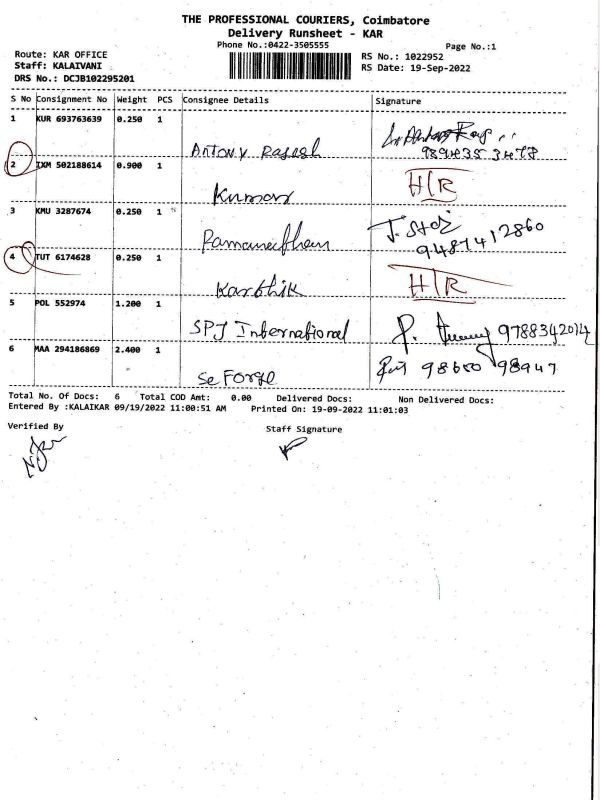 THE PROFESSIONAL COURIERS, Coimbatore
Delivery Runsheet - KAR
Phone No.:0422-3505555
Page No.:1
Route: KAR OFFICE
RS No.: 1022952
Staff: KALAIVANI
RS Date: 19-Sep-2022
DRS No.: DCJB102295201
S No Consignment No Weight PCS Consignee Details Signature
1 KUR 693763639 0.250 1
Antony Rajesh
2 IXM 502188614 0.900 1 H/R
Kumar
3 KMU 3287674 0.250 1
9487412860
4 TUT 6174628 0.250 1 H/R
Karthik
5 POL 552974 1.200 1
SPJ International 9788342014
6 MAA 294186869 2.400 1
Se Forge 98650 98947
Total No. Of Docs: 6 Total COD Amt: 0.00 Delivered Docs: Non Delivered Docs:
Entered By :KALAIKAR 09/19/2022 11:00:51 AM Printed On: 19-09-2022 11:01:03
Verified By Staff Signature